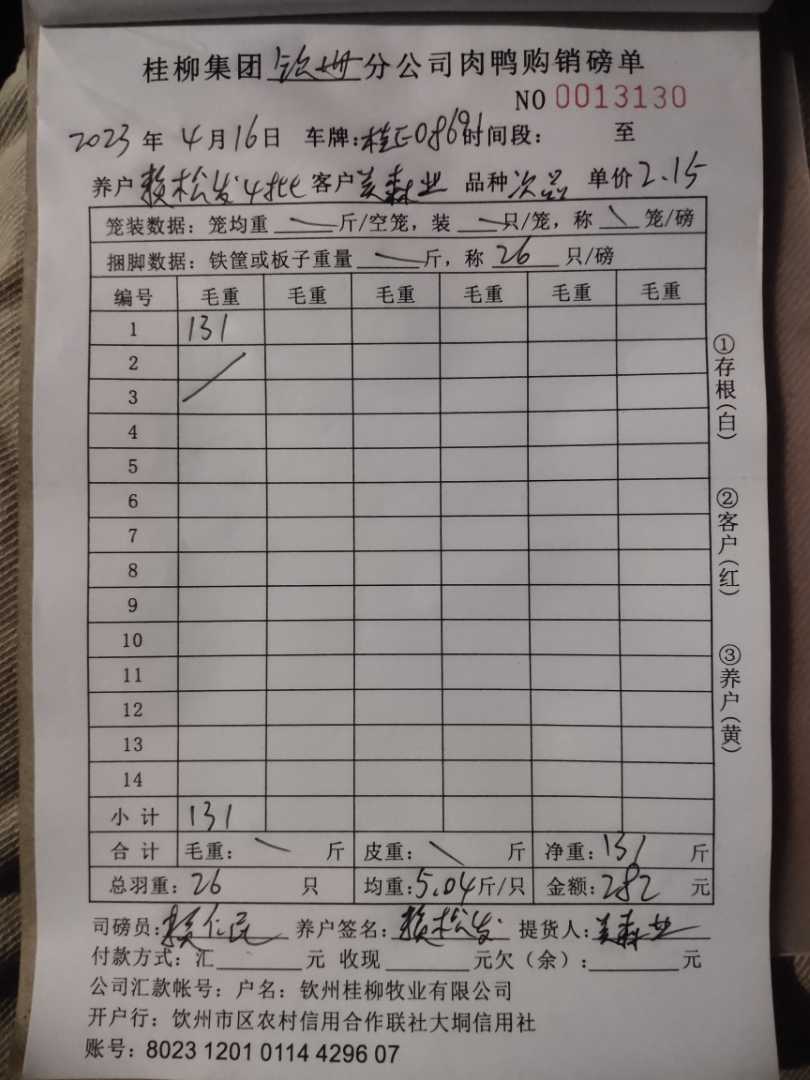 桂柳集团钦州分公司肉鸭购销磅单
NO 0013130
2023年4月16日 车牌:桂E0869 时间段: 至
养户赖松发4批 客户美森业 品种次品 单价2.15
笼装数据:笼均重 斤/空笼,装 只/笼,称 笼/磅
捆脚数据:铁筐或板子重量 斤,称26只/磅
编号 毛重 毛重 毛重 毛重 毛重 毛重
1 131
2
3
4
5
6
7
8
9
10
11
12
13
14
小计 131
合计 毛重: 斤 皮重: 斤 净重:131斤
总羽重:26只 均重:5.04斤/只 金额:282元
司磅员:赖仁民 养户签名:赖松发 提货人:美森业
付款方式:汇 元 收现 元欠(余): 元
公司汇款帐号:户名:钦州桂柳牧业有限公司
开户行:钦州市区农村信用合作联社大垌信用社
账号:8023 1201 0114 4296 07
①存根(白)
②客户(红)
③养户(黄)